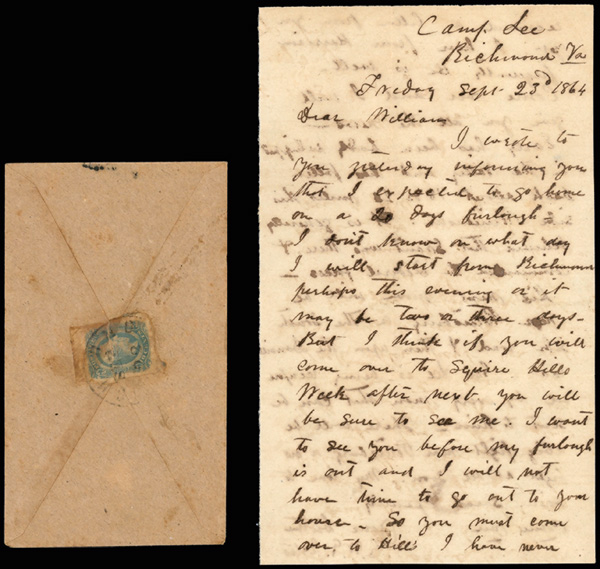 Camp Lee
Richmond Va
Friday Sept 23d 1864
Dear William
I wrote to
you yesterday informing you
that I expected to go home
on a 20 days furlough
I don't know on what day
I will start from Richmond
perhaps this evening or it
may be two or three days-
But I think if you will
come over to Squire Hills
Week after next you will
be sure to see me. I want
to see you before my furlough
is out and I will not
have time to go out to your
house - So you must come
over to Hills I have never